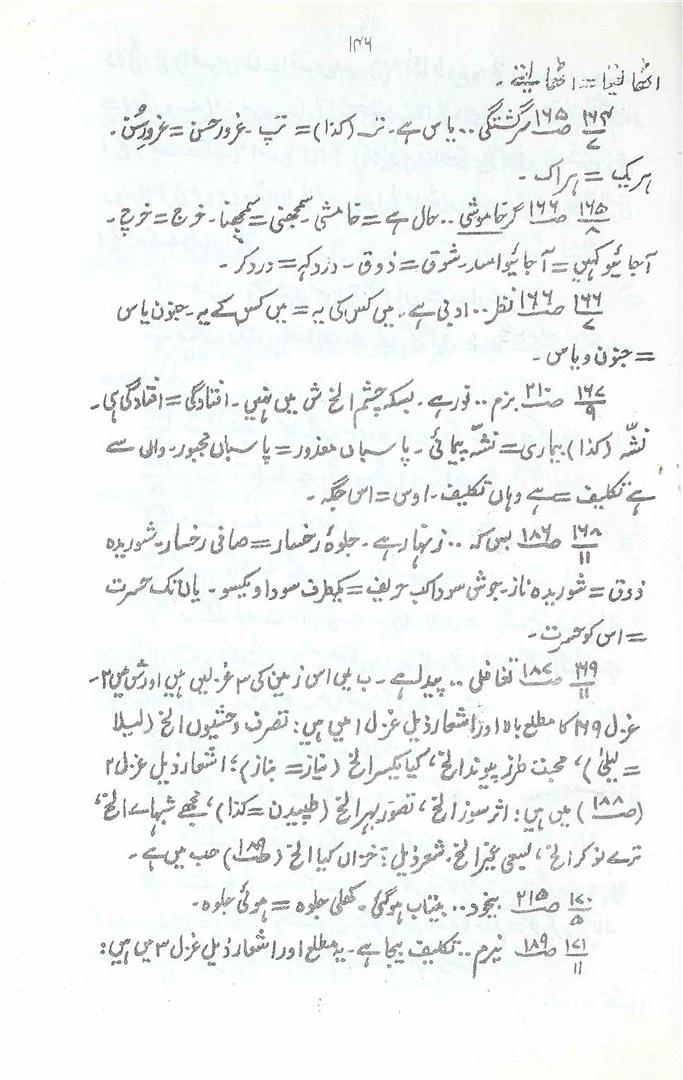 ۱۴۶
اٹھا لیتا = اٹھا لیتے ۔
۱۶۴/۷ ص ۱۶۵ سرگشتگی .. یاس ہے۔ تر (کذا) = تپ۔ غرور حسن = غرورِ حُسن۔
ہریک = ہراک ۔
۱۶۵/۸ ص ۱۶۶ گرخاموشی .. حال ہے = خامشی ۔ سمجھنی = سمجھنا۔ خرج = خرچ ۔
آجائیو کہیں = آجائیو اسد۔ شوق = ذوق ۔ درد کہہ = درد کر ۔
۱۶۶/۷ ص ۱۶۶ نظر .. ادبی ہے۔ میں کس کی یہ = میں کس کے یہ ۔ جنون یاس
= جنون و یاس ۔
۱۶۷/۹ ص ۲۱۰ بزم .. نور ہے ۔ بسکہ چشم الخ ش میں نہیں ۔ افتادگی = افتادگی ہی۔
نشّہ (کذا) بیماری = نشّہ پیمائی ۔ پاسباں معذور = پاسباں مجبور۔ والی سے
ہے تکلیف = سے وہاں تکلیف۔ اوس = اس جگہ ۔
۱۶۸/۱۱ ص ۱۸۶ بس کہ .. زنہار ہے ۔ جلوۂ رخسار = صافی رخسار۔ شوریدہ
ذوق = شوریدہ ناز۔ جوش سودا کب حریف = یکطرف سودا و یکسو ۔ یاں تک حسرت
= اس کو حسرت ۔
۱۶۹/۱۱ ص ۱۸۷ تغافلی .. پیدا ہے ۔ ب میں اس زمین کی ۳ غزلیں ہیں اور ش میں ۲۔
غزل ۱۶۹ کا مطلع یاہ اور اشعار ذیل غزل ا میں ہیں : تصرف وحشیوں الخ (لیلا
= لیلیٰ)، محبت طرز پیوند الخ، کیا یکسر الخ (نیاز = بناز)؛ اشعار ذیل غزل ۲
(ص ۱۸۸) میں ہیں : اثر سوز الخ، تصور بہر الخ (طپیدن = کذا)، مجھے شبہاے الخ،
ترے نوکر الخ، بسعی غیر الخ۔ شعر ذیل : خزاں کیا الخ (ص ۱۸۹) حب میں ہے ۔
۱۷۰/۵ ص ۲۱۵ بیخود .. بیتاب ہو گئی ۔ کھلی جلوہ = ہوئی جلوہ ۔
۱۷۱/۱۱ ص ۱۸۹ نیرم .. تکلیف بیجا ہے ۔ یہ مطلع اور اشعار ذیل غزل ۳ میں ہیں :